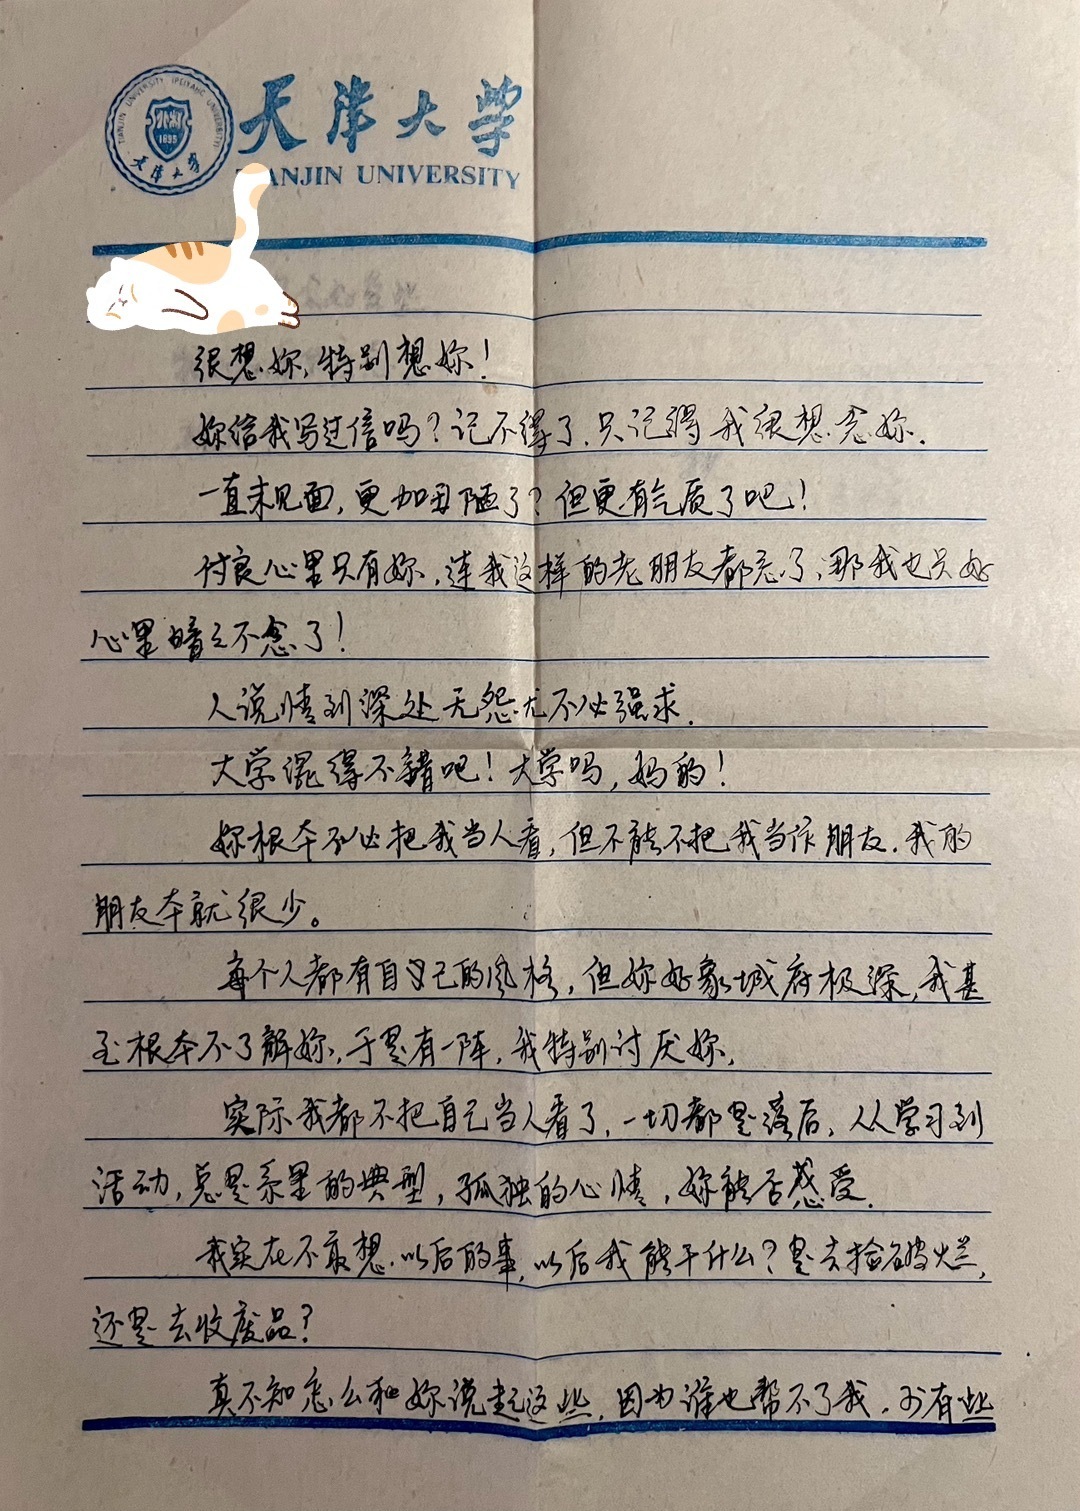 天津大学
TIANJIN UNIVERSITY
TIANJIN UNIVERSITY (PEIYANG UNIVERSITY)
北洋
1895
天津大学
很想妳,特别想妳!
妳给我写过信吗?记不得了.只记得我很想念妳.
一直未见面,更加丑陋了?但更有气质了吧!
付良心里只有妳,连我这样的老朋友都忘了,那我也只好
心里暗之不念了!
人说情到深处无怨尤不必强求.
大学混得不错吧!大学吗,妈的!
妳根本不必把我当人看,但不能不把我当作朋友.我的
朋友本就很少。
每个人都有自己的风格,但妳好象城府极深,我甚
至根本不了解妳,于是有一阵,我特别讨厌妳,
实际我都不把自己当人看了,一切都是落后,从学习到
活动,总是系里的典型,孤独的心情,妳能否感受.
我实在不敢想.以后的事,以后我能干什么?是去捡破烂,
还是去收废品?
真不知怎么和妳说起这些,因为谁也帮不了我.少有些